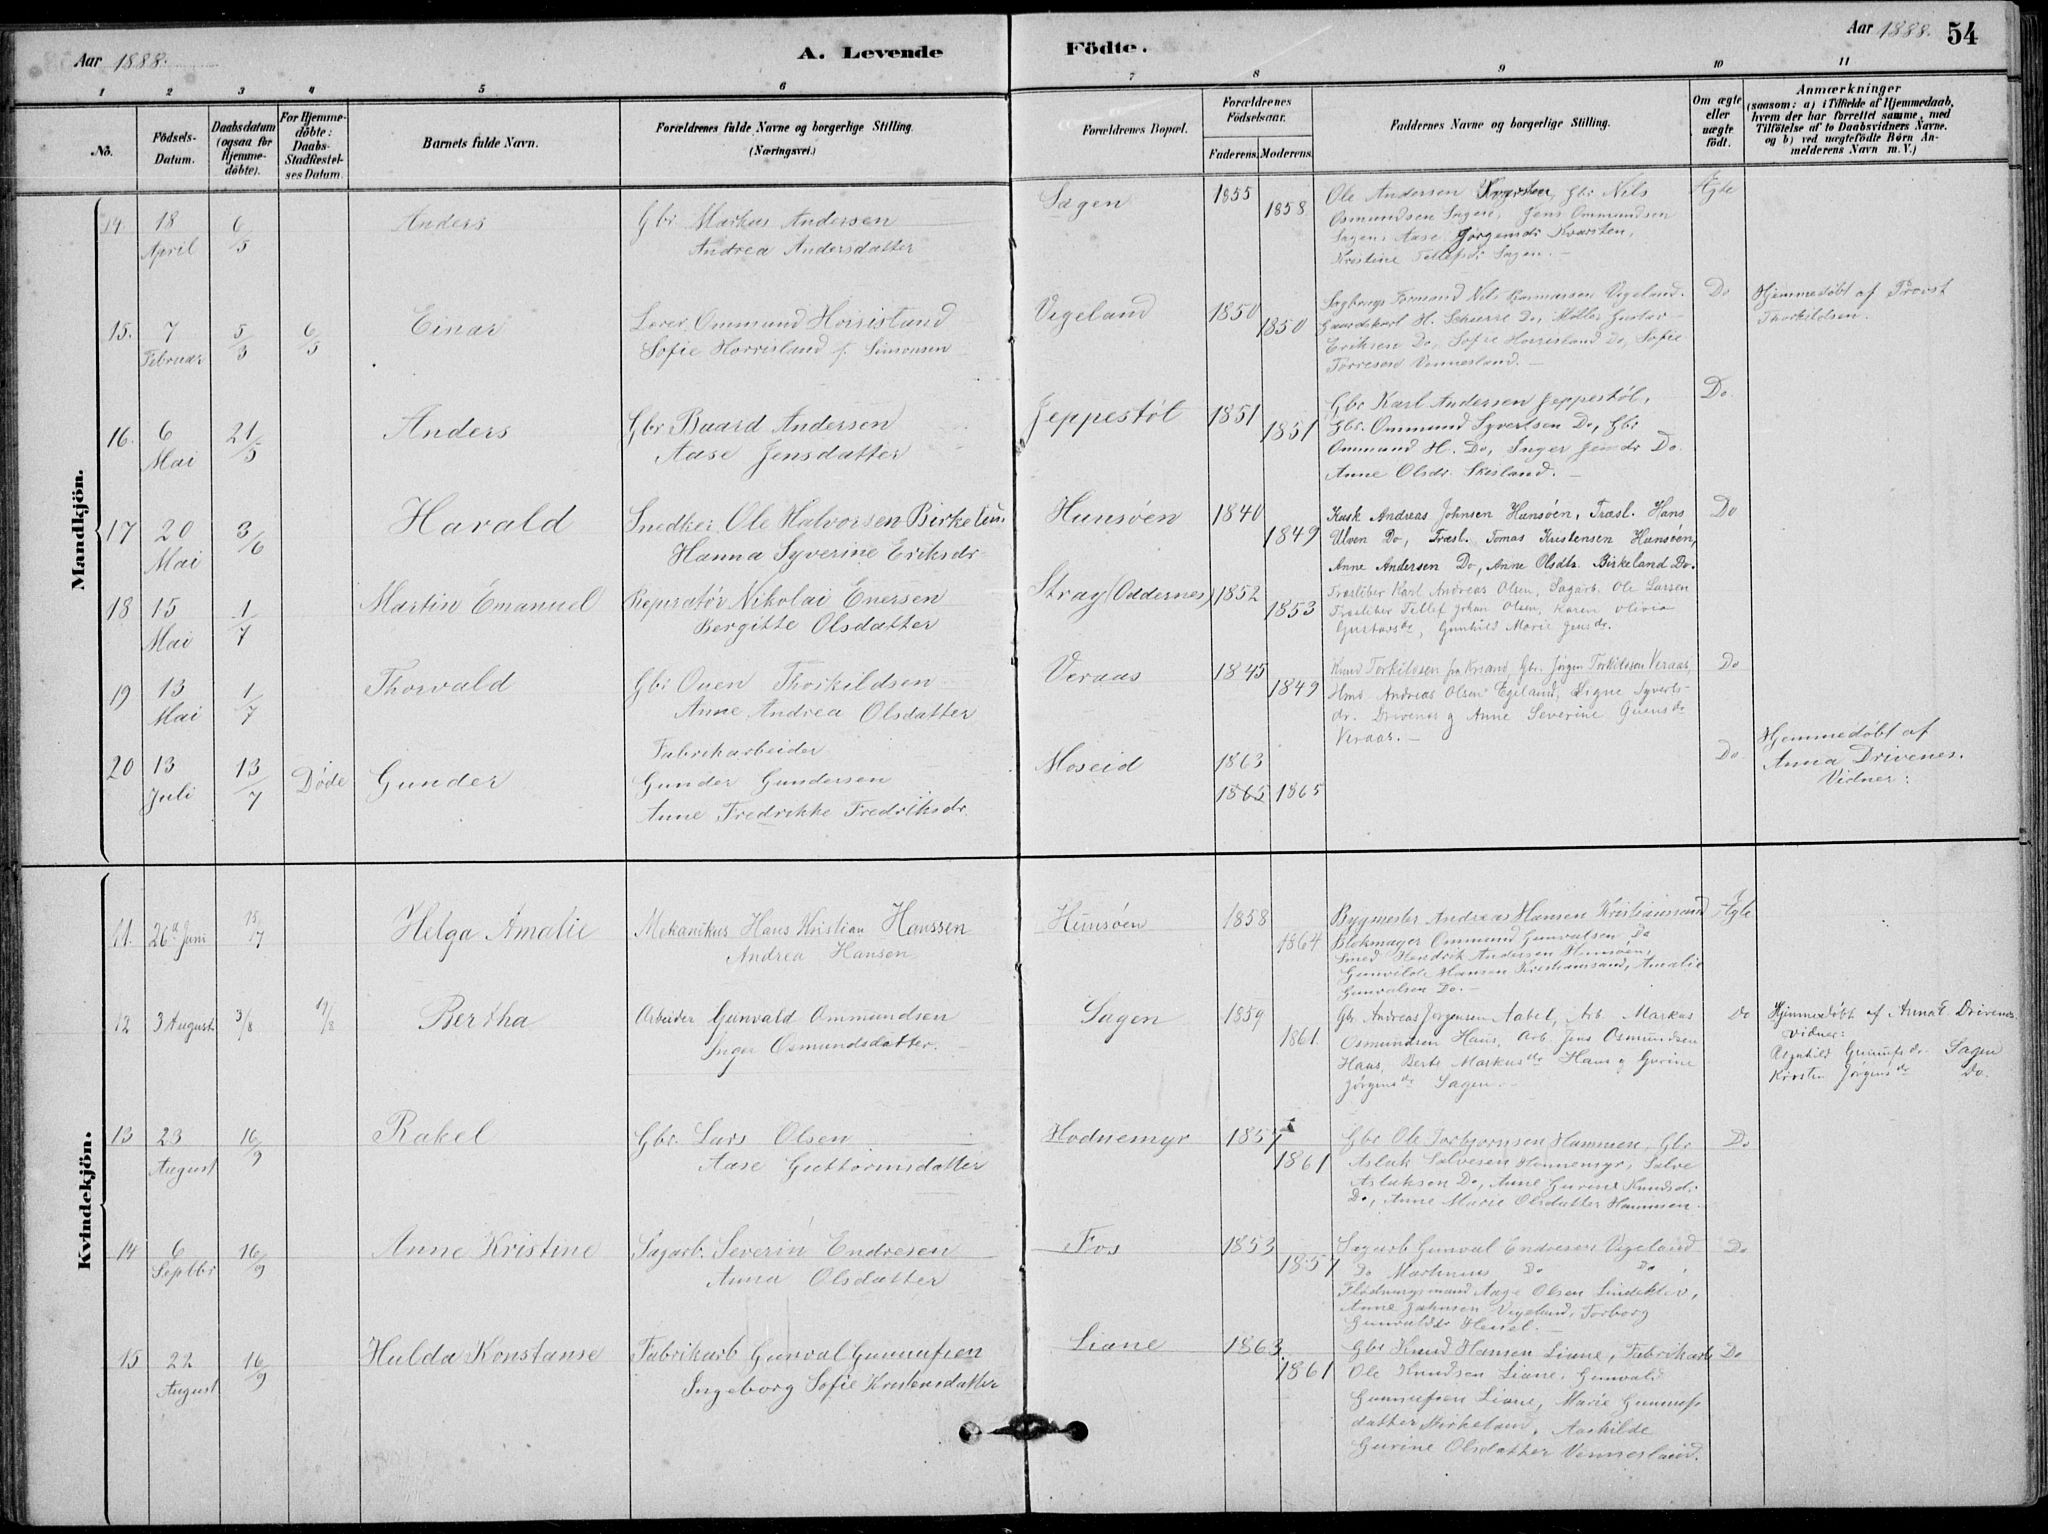 Aar 1888.
A. Levende
Födte.
Aar 1888. 54
1 2 3 4 5 6
7 8 9 10 11
No.
Födsels-Datum.
Daabsdatum (ogsaa for Hjemmedöbte).
For Hjemmedöbte: Daabs-Stadfæstelses Datum.
Barnets fulde Navn.
Forældrenes fulde Navne og borgerlige Stilling.
(Næringsvei.)
Forældrenes Bopæl.
Forældrenes Födselsaar.
Faderens. Moderens.
Faddernes Navne og borgerlige Stilling.
Om ægte eller uægte födt.
Anmærkninger
(saasom: a) i Tilfælde af Hjemmedaab, hvem der har forrettet samme, med Tilföielse af to Daabsvidners Navne. og b) ved uægtefödte Börn Anmelderens Navn m. V.)
Mandkjön.
14. 18 April 6/5 Anders
Gbr. Markus Andersen
Andrea Andersdatter
Sagen 1855 1858
Ole Andersen Kvarsten, Gbr Nils
Osmundsen Sagen, Jens Ommundsen
Sagen, Aase Jørgensdr Kvarsten,
Kristine Tellefsdr Sagen. -
Ægte
15. 7 Februar 5/3 6/5 Einar
Lærer Ommund Horrisland
Sofie Horrisland f. Simonsen
Vigeland 1850 1850
Sagbrugs Formand Nils Rasmussen Vigeland.
Gaardskarl H. Do, Møller Gustav
Eriksen Do, Sofie Horrisland Do, Sofie
Torresen Vennesland. -
Do
Hjemmedøbt af Provst
Thorkildsen.
16. 6 Mai 21/5 Anders
Gbr Baard Andersen
Aase Jensdatter
Jeppestøl 1851 1851
Gbr Karl Andersen Jeppestøl,
Gbr. Ommund Syvertsen Do, Gbr
Ommund H. Do, Inger Jensdr Do.
Anne Olsdr. Skisland. -
Do
17 20 Mai 3/6 Harald
Snedker Ole Halvorsen Birkelun
Hanna Syverine Eriksdr
Hunsøen 1840 1849
Kusk Andreas Johnsen Hunsøen, Træsl. Hans
Ulven Do, Træsl. Tomas Kristensen Hunsøen,
Anne Andersen Do, Anne Olsdtr. Birkeland Do.
Do
18 15 Mai 1/7 Martin Emanuel
Repratør Nikolai Enersen
Bergitte Olsdatter
Stray (Oddernes) 1852 1853
Træsliber Karl Andreas Olsen, Sagarb. Ole Larsen
Træsliber Tellef Johan Olsen, Karen Olivia
Gustavsdr, Gunhild Marie Jensdr.
19 13 Mai 1/7 Thorvald
Gbr Ouen Thorkildsen
Anne Andrea Olsdatter
Veraas 1845 1849
Knud Torkildsen fra Krsand, Gbr. Jørgen Torkildsen Veraas,
Hms Andreas Olsen Egeland, Signe Syverts-
dr. Drivenes g Anne Severine Ouensdr
Veraas. -
Do
20 13 Juli 13/7 Døde Gunder
Fabrikarbeider
Gunder Gundersen
Anne Fredrikke Fredriksdr.
Moseid 1863
1865 1865
Do
Hjemmedøbt af
Anna Drivenes.
Vidner:
Kvindekjön.
11. 26 Juni 15/7 Helga Amalie
Mekanikus Hans Kristian Hanssen
Andrea Hansen
Hunsøen 1858 1864
Bygmester Andreas Hansen Kristianssand
Blokmager Ommund Gunvalsen Do
Smed Hendrik Andersen Hunsøen,
Gunvilde Hansen Kristianssand, Amalie
Gunvalsen Do. -
Ægte
12 3 August 3/8 19/8 Bertha
Arbeider Gunvald Ommundsen
Inger Osmundsdatter.
Sagen 1859 1861.
Gbr Andreas Jørgensen Aabel, Arb. Markus
Osmundsen Haus, Arb. Jens Osmundsen
Haus, Berte Markusdr Haus g Gurine
Jørgensdr Sagen. -
Do
Hjemmedøbt af Anna E. Drivenes
Vidner:
Gunufsdr. Sagen
Kirsten Jørgensdr Do.
13 23 August 16/9 Rakel
Gbr. Lars Olsen
Aase Guttormsdatter
Hodnemyr 1857 1861
Gbr Ole Torbjørnsen Hammen, Gbr
Aslak Salvesen Honnemyr, Salve
Aslaksen Do, Anne Gurine Knudsdr
Do, Anne Marie Olsdatter Hammen.
Do
14 6 Septbr 16/9 Anne Kristine
Sagarb. Severin Endresen
Anna Olsdatter
Fos 1853 1857
Sagarb Gunval Endresen Vigeland
Do Martinus Do Do.
Flødningsmand Aage Olsen
Anne Johnsen Vigeland, Torborg
Gunvaldsdr Heisel. -
Do
15 22 August 16/9 Hulda Konstanse
Fabrikarb Gunval Gunnufsen
Ingeborg Sofie Kristensdatter
Liane 1863 1861
Gbr Knud Hansen Liane, Fabrikarb
Ole Knudsen Liane, Gunvald
Gunnufsen Liane, Marie Gunnufs
datter Birkeland, Aashilde
Gurine Olsdatter Vennesland.
Do